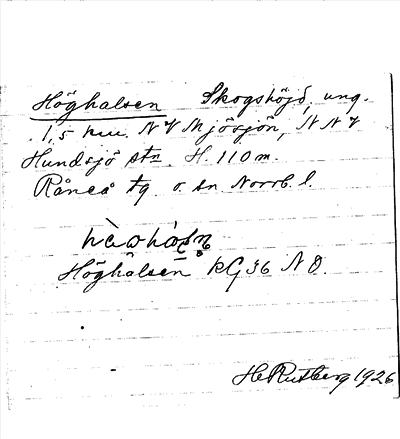 Höghalsen Skogshöjd, ung.
1,5 km. N V Mjösjön, N N V
Hundsjö stn. H. 110 m.
Råneå tg. o. sn Norrb. l.
Höghalsen KG 36 N O.
H. Rutberg 1926